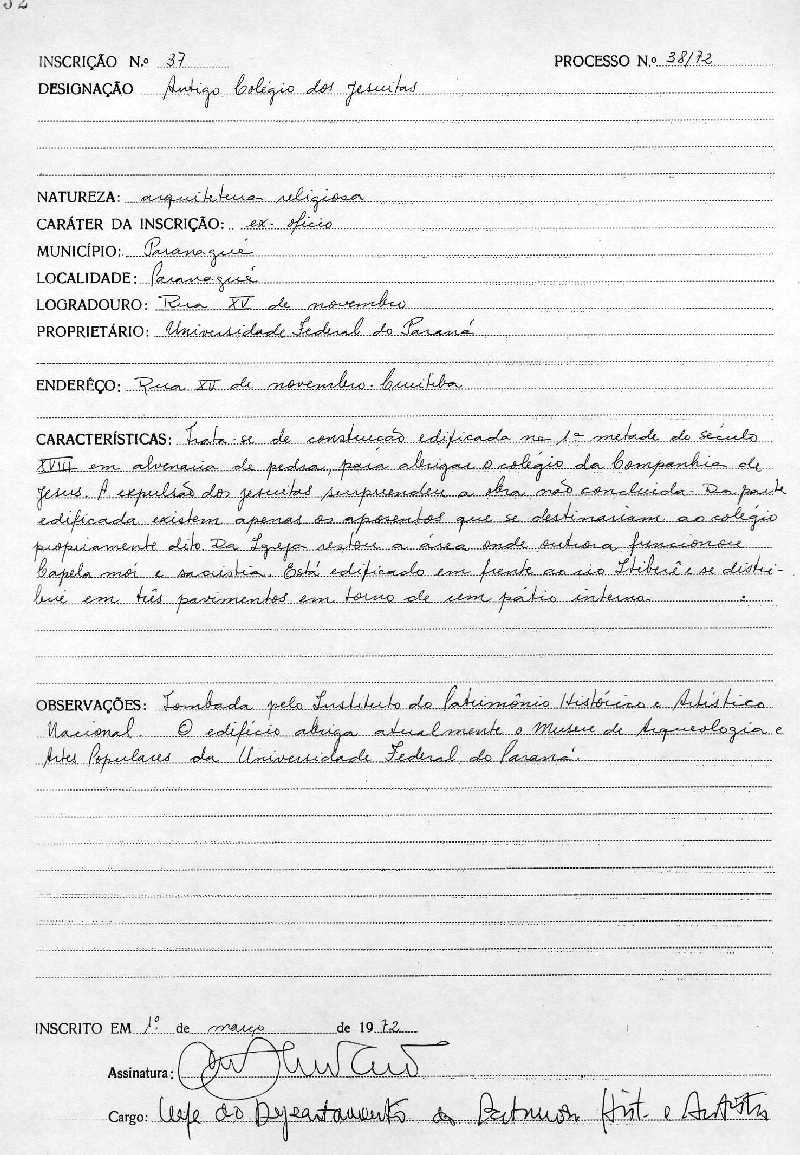 32
INSCRIÇÃO N.º 37 PROCESSO N.º 38/72
DESIGNAÇÃO Antigo Colégio dos Jesuitas
NATUREZA: arquitetura religiosa
CARÁTER DA INSCRIÇÃO: ex-oficio
MUNICÍPIO: Paranaguá
LOCALIDADE: Paranaguá
LOGRADOURO: Rua XV de novembro
PROPRIETÁRIO: Universidade Federal do Paraná
ENDERÊÇO: Rua XV de novembro. Curitiba
CARACTERÍSTICAS: Trata-se de construcção edificada na 1ª metade do século
XVIII em alvenaria de pedra, para abrigar o colégio da Companhia de
Jesus. A expulsão dos jesuitas surpreendeu a obra não concluida. Da parte
edificada existem apenas os aposentos que se destinariam ao colégio
propriamente dito. Da Igreja restou a área onde outrora funcionou
Capela mór e sacristia. Está edificado em frente ao rio Itiberê e se distri-
bui em três pavimentos em torno de um pátio interno.
OBSERVAÇÕES: Tombada pelo Instituto do Patrimônio Histórico e Artístico
Nacional. O edifício abriga atualmente o Museu de Arqueologia e
Artes Populares da Universidade Federal do Paraná.
INSCRITO EM 1º de março de 1972
Assinatura:
Cargo: Chefe do Departamento do Patrimon Hist. e Artístic